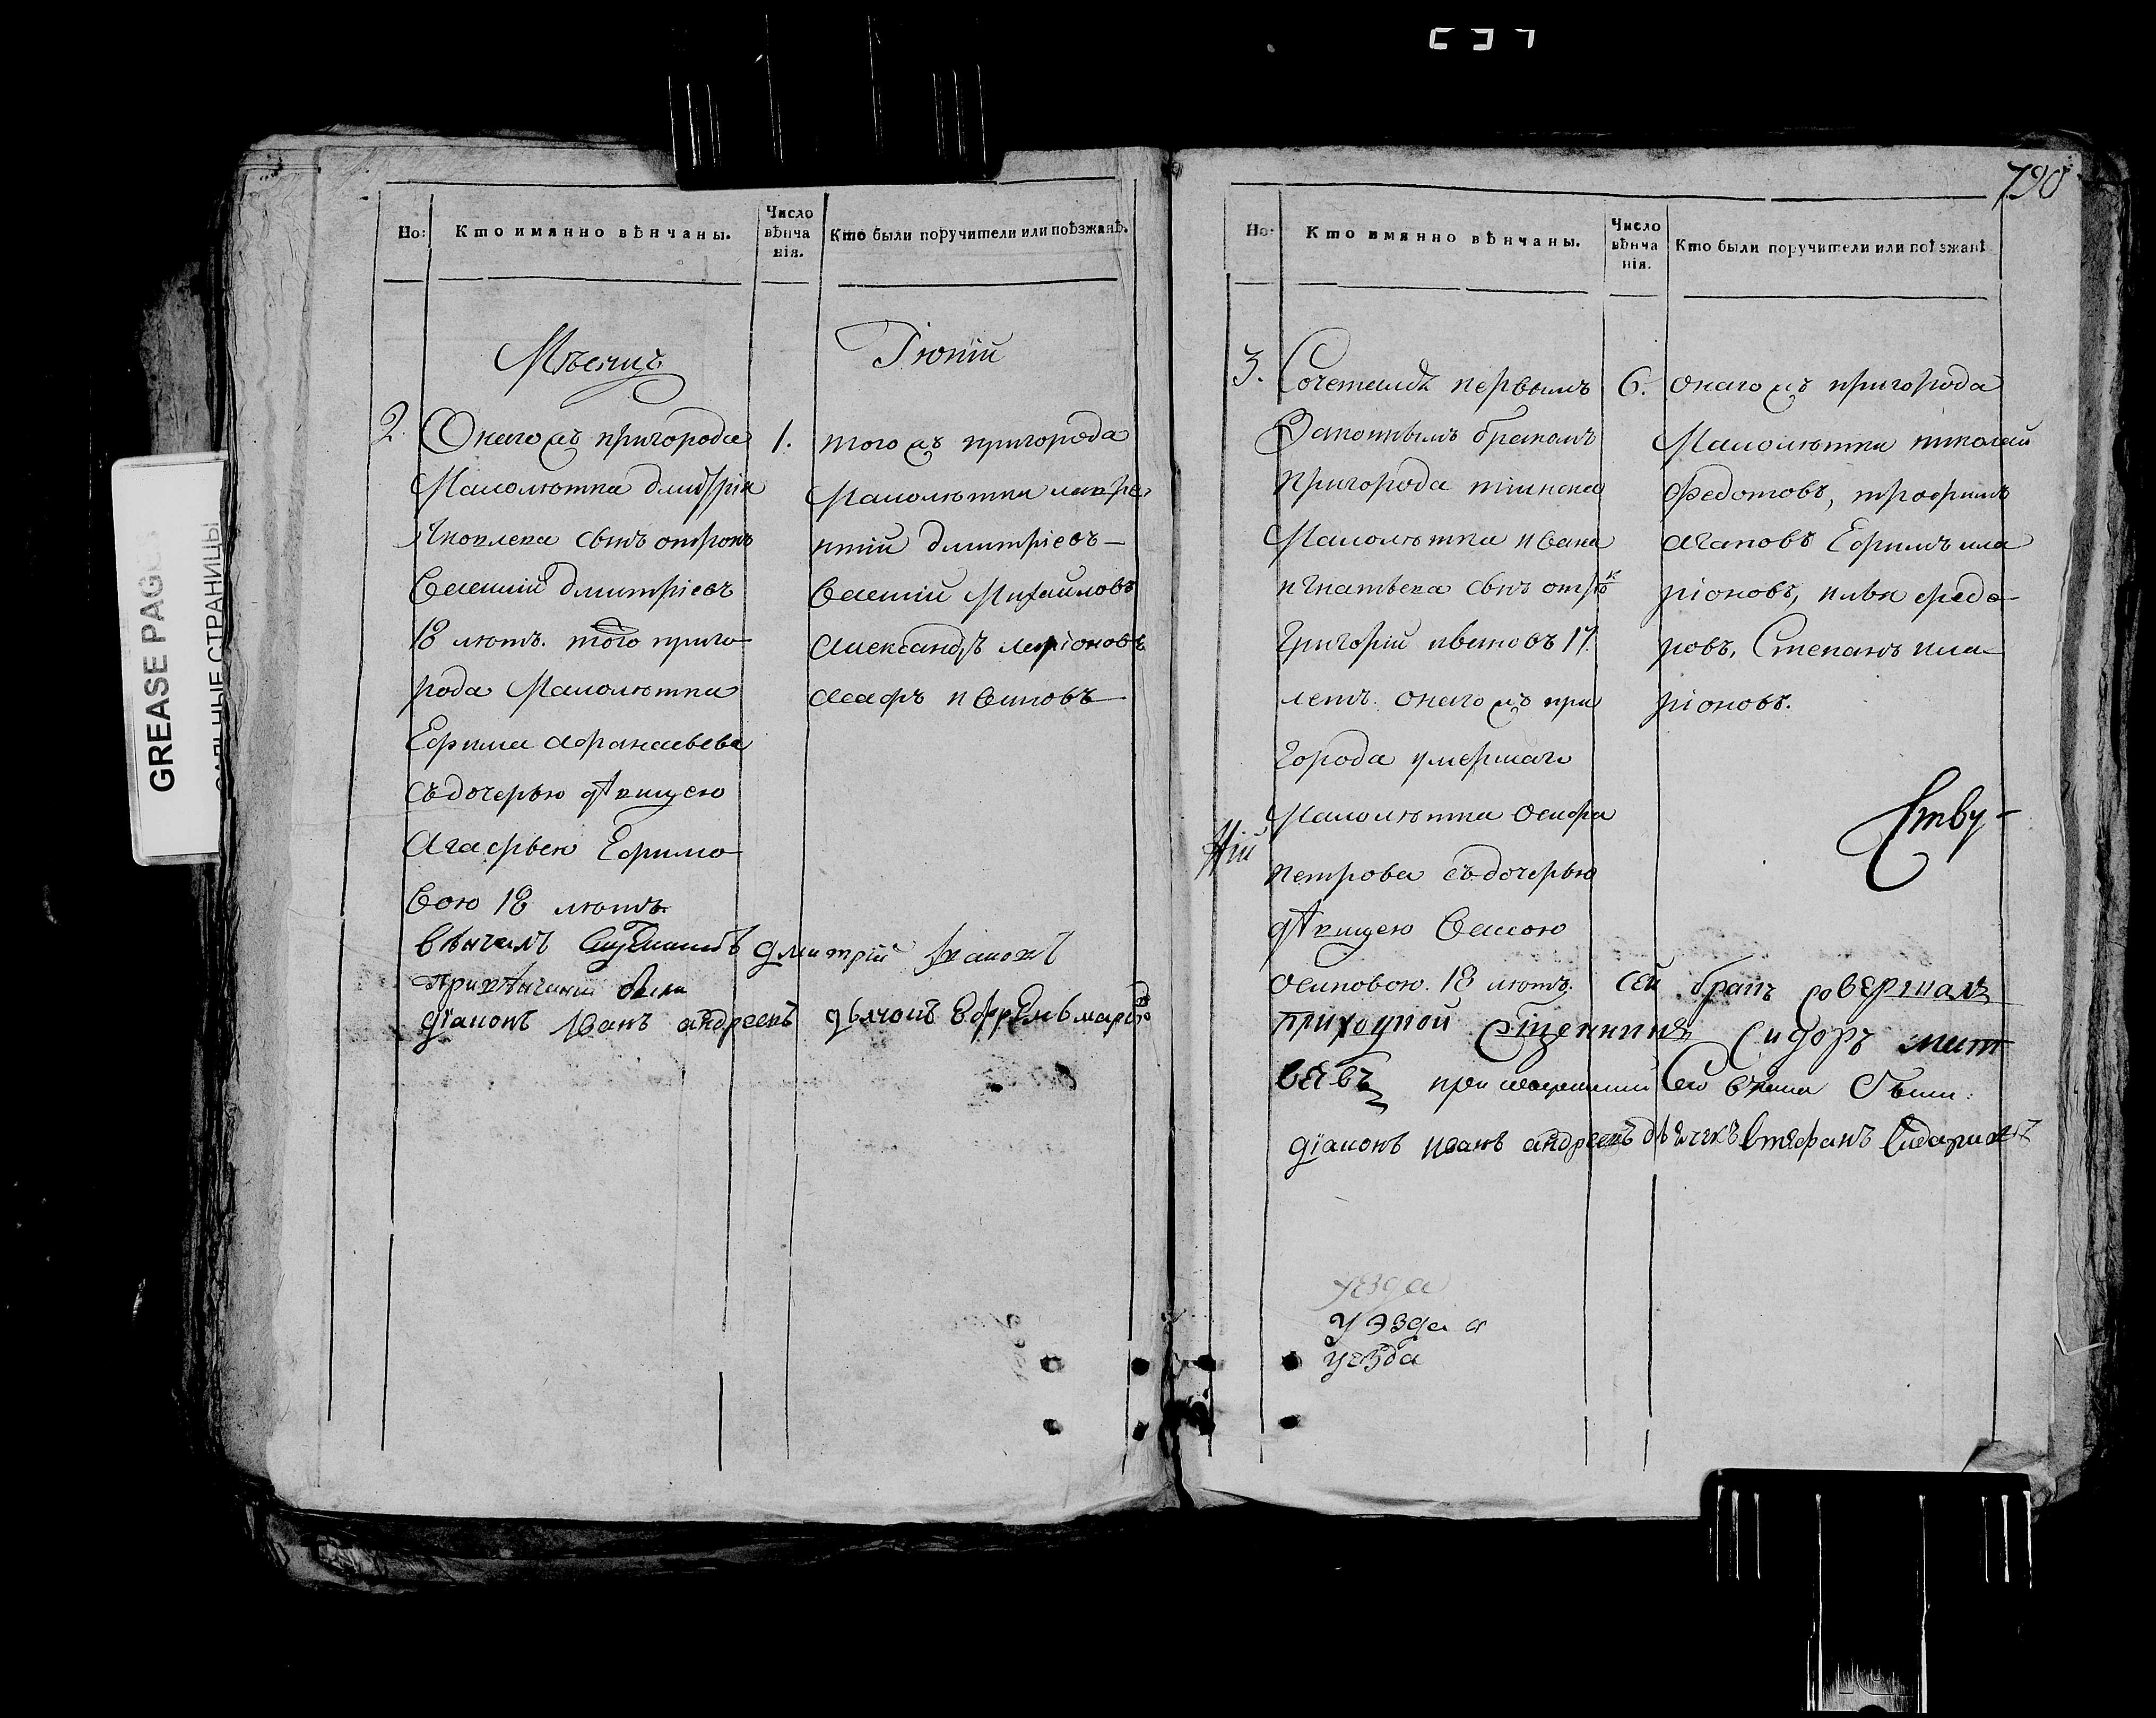 790
Но:
Кто имянно вѣнчаны.
Число вѣнча нія.
Кто были поручители или поѣзжанѣ.
Мѣсяцъ
Іюній
2.
Онагожъ пригорода
Малолѣтка дмитрія
Яковлева сынъ отрокъ
Василій дмитріевъ
18 лѣтъ. того приго
рода Малолѣтка
Ефима афанасьева
съ дочерью дѣвицею
Агафьею Ефимо
вою 18 лѣтъ.
1.
тогожъ пригорода
Малолѣтки лавре
нтій дмитріевъ
Василій Михайловъ
Александръ ларіоновъ
Ивановъ
вѣнчалъ Священникъ дмитрій
при вѣнчаніи были
діаконъ Иванъ андреевъ дьячокъ
Но:
Кто имянно вѣнчаны.
Число вѣнча нія.
Кто были поручители или поѣзжанѣ
3.
Сочетался первымъ
Законнымъ бракомъ
Пригорода тіинска
Малолѣтка ивана
игнатьева сынъ отрокъ
Григорій ивановъ 17.
летъ. онагожъ при
города умершаго
Малолѣтка осипа
петрова съ дочерью
дѣвицею
осиповою. 18 лѣтъ.
6.
онагожъ пригорода
Малолѣтки николай
федотовъ, трофимъ
агаповъ Ефимъ ила
ріоновъ, федо
ровъ, Степанъ ила
ріоновъ.
сей бракъ совершалъ
приходной священникъ Сидоръ мат
вѣевъ при были
діаконъ иванъ андреевъ дьячекъ стефанъ
уезда
уэзда
уезда
GREASE PAGES
САЛЬНЫЕ СТРАНИЦЫ